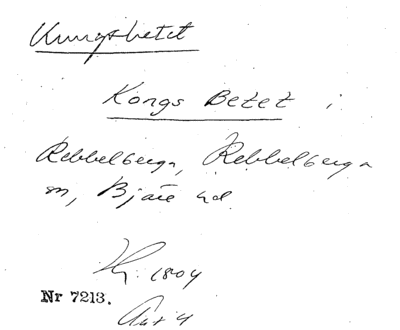 Kungsbetet
Kongs Betet i
Rebbelberga, Rebbelberga
sn, Bjäre hd
1804
Nr 7213.